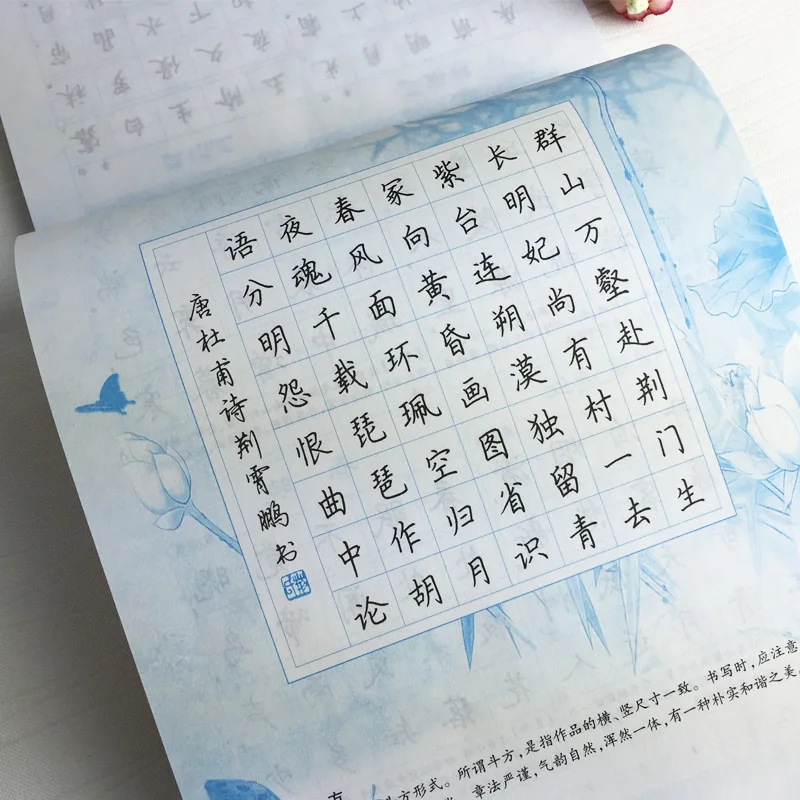 群山万壑赴荆门生
长明妃尚有村一去
紫台连朔漠独留青
冢向黄昏画图省识
春风面环珮空归月
夜魂千载琵琶作胡
语分明怨恨曲中论
唐杜甫诗荆霄鹏书
方形式。所谓斗方，是指作品的横、竖尺寸一致。书写时，应注意
章法严谨，气韵自然，浑然一体，有一种朴实和谐之美。